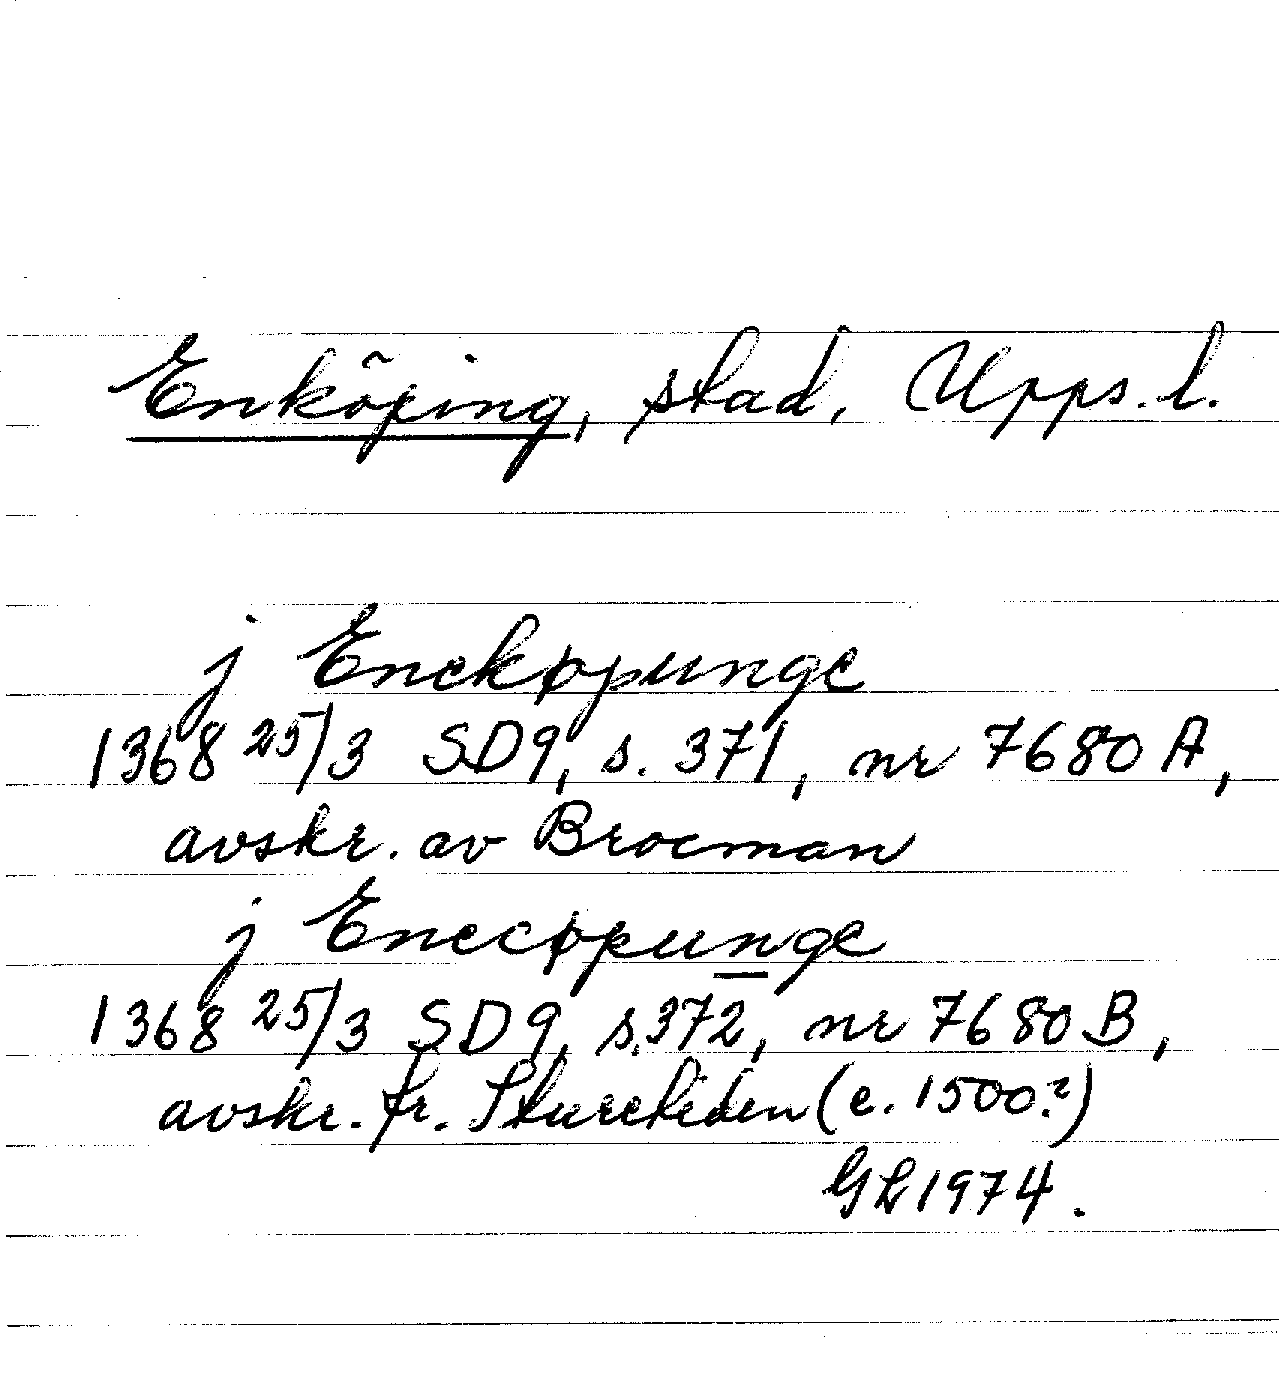 Enköping, stad, Upps. l.
j Enekøpunge
1368 25/3 SD9, s. 371, nr 7680 A,
avskr. av Brocman
j Enecøpunge
1368 25/3 SD9, s. 372, nr 7680 B,
avskr. fr. Sturetiden (c. 1500?)
GL 1974.